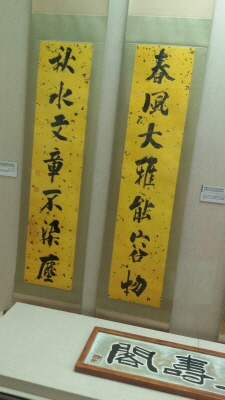 春風大雅能容物
秋水文章不染塵
壽閣